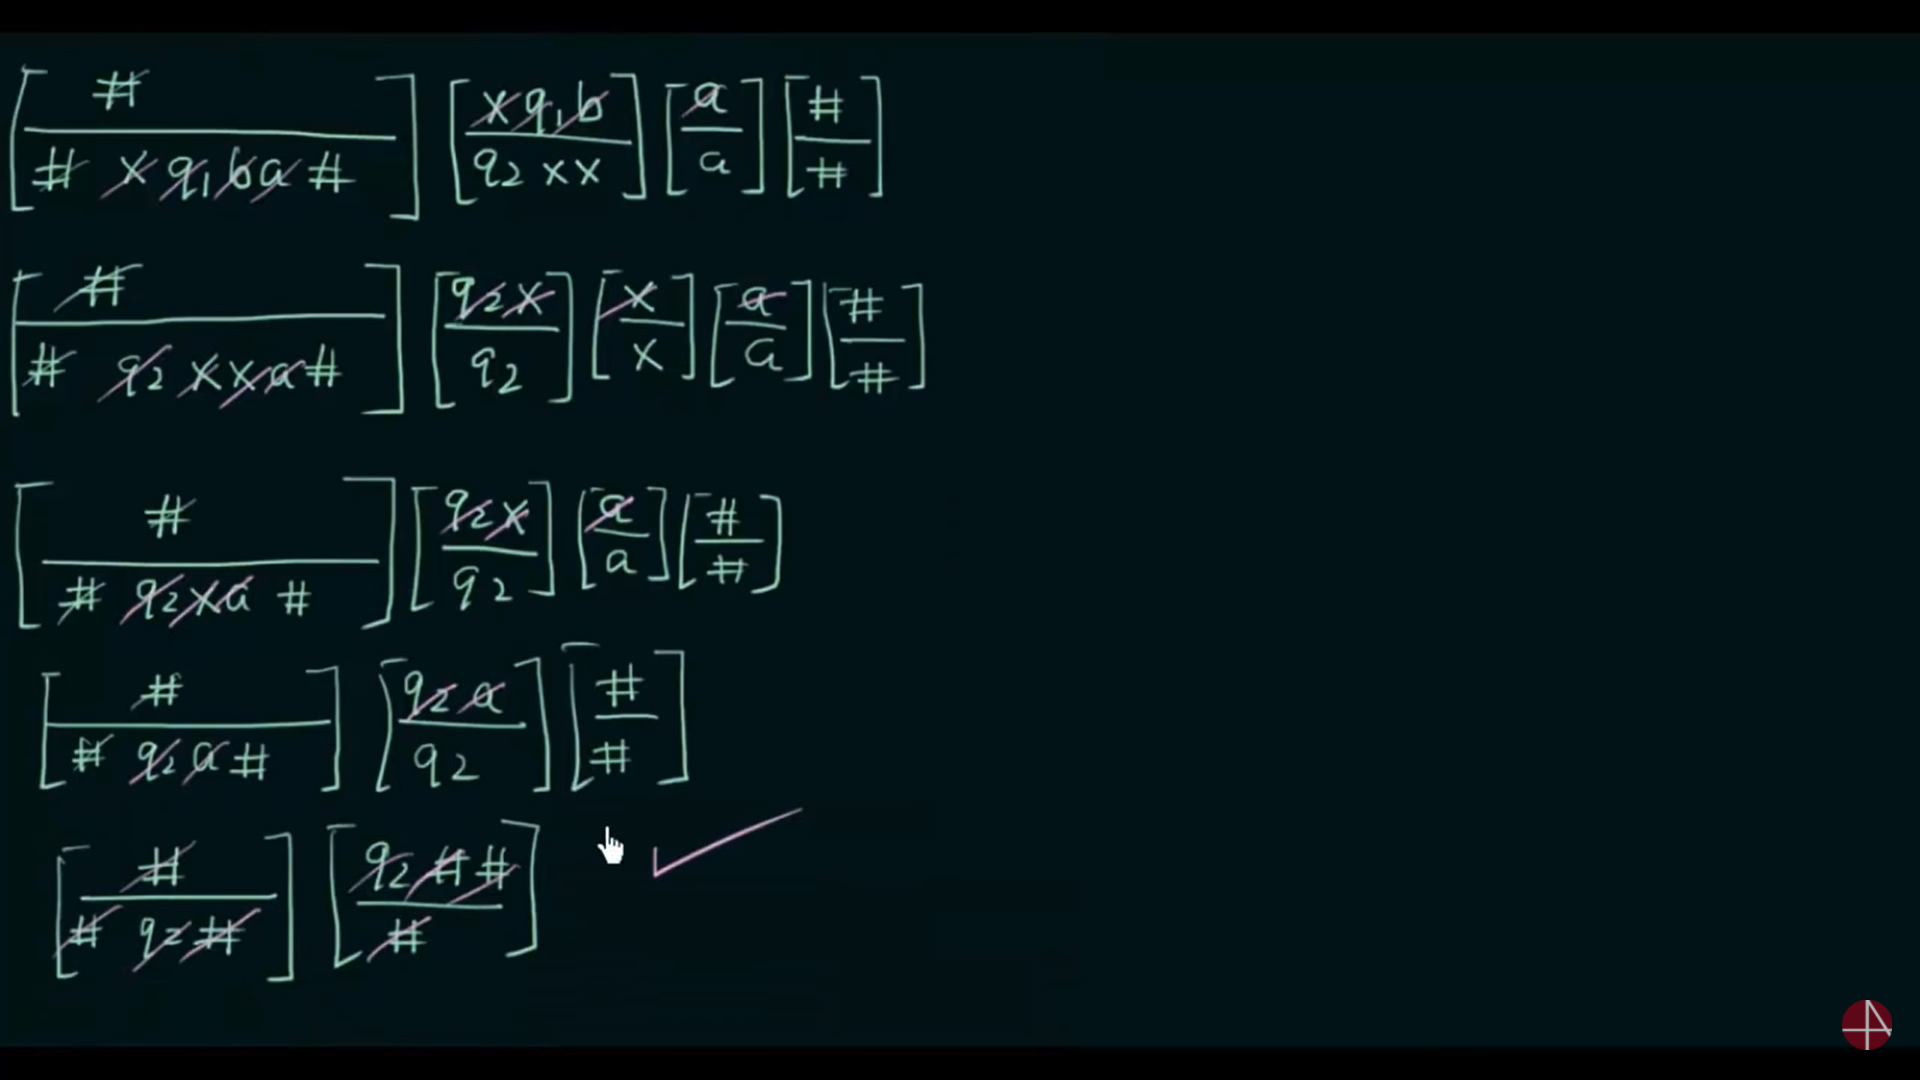 [#/# x q1 b a #] [x q1 b/q2 x x] [a/a] [#/#]
[#/# q2 x x a #] [q2 x/q2] [x/x] [a/a] [#/#]
[#/# q2 x a #] [q2 x/q2] [a/a] [#/#]
[#/# q2 a #] [q2 a/q2] [#/#]
[#/# q2 #] [q2 # #/#]